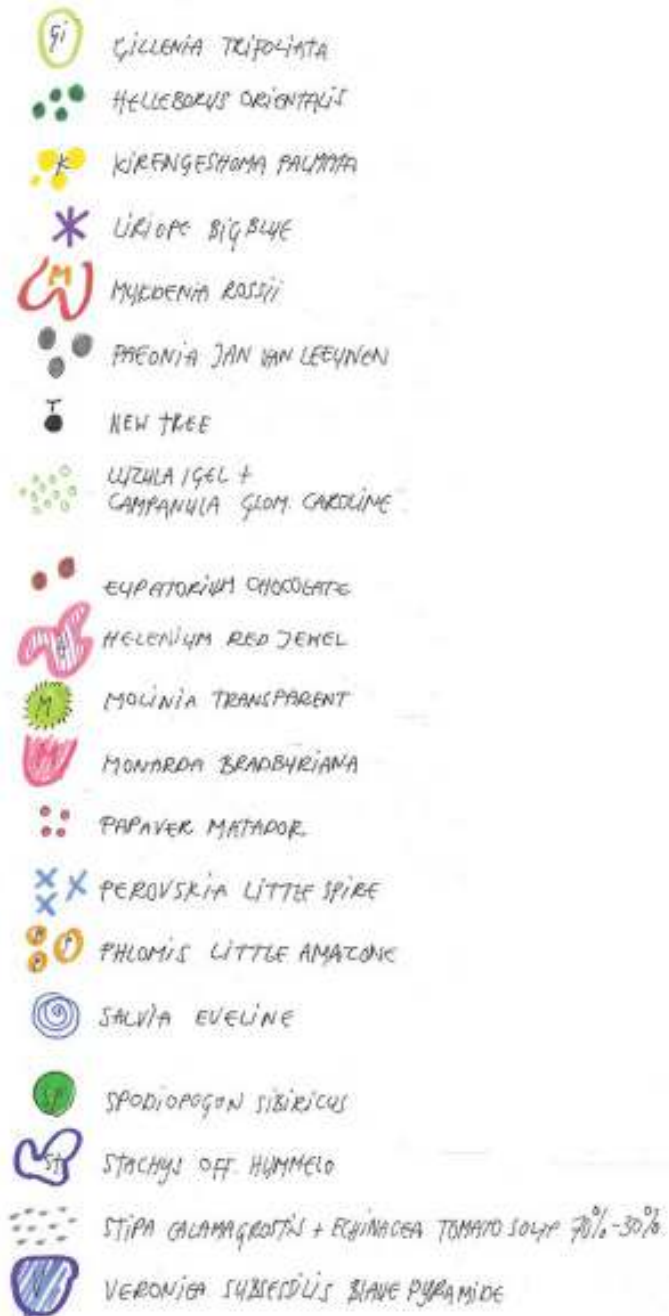 Gi GILLENIA TRIFOLIATA
HELLEBORUS ORIENTALIS
K KIRENGESHOMA PALMATA
LIRIOPE BIG BLUE
M MUKDENIA ROSSII
PAEONIA JAN VAN LEEUWEN
T NEW TREE
LUZULA IGEL +
CAMPANULA GLOM. CAROLINE
EUPATORIUM CHOCOLATE
H HELENIUM RED JEWEL
M MOLINIA TRANSPARENT
M MONARDA BRADBURIANA
PAPAVER MATADOR
PEROVSKIA LITTLE SPIRE
PHLOMIS LITTLE AMAZONE
SALVIA EVELINE
SP SPODIOPOGON SIBIRICUS
ST STACHYS OFF. HUMMELO
STIPA CALAMAGROSTIS + ECHINACEA TOMATO SOUP 70%-30%
V VERONICA SUBSESSILIS BLAUE PYRAMIDE